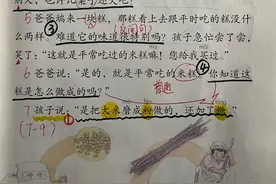 5 爸爸端来一块糕，那糕看上去跟平时吃的糕没什
么两样，难道它的味道很特别吗？孩子急忙尝了尝，
笑了：“这就是平常吃过的米糕嘛！您给我买过。”
6 爸爸说：“是的，就是平常吃的米糕，你知道这
糕是怎么做成的吗？”
7 孩子说：“是把大米磨成粉做的，还加了糖。”
(7-9)
①
③
④
普通